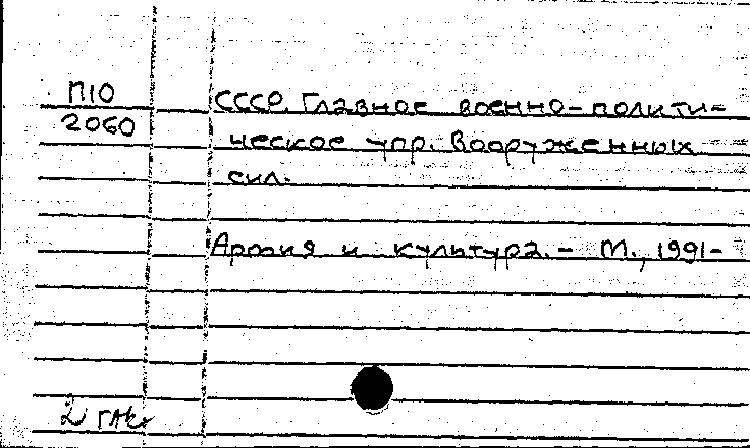 П10
2060
СССР. Главное военно-полити-
ческое упр. Вооруженных
сил.
Армия и культура. - М., 1991-
2